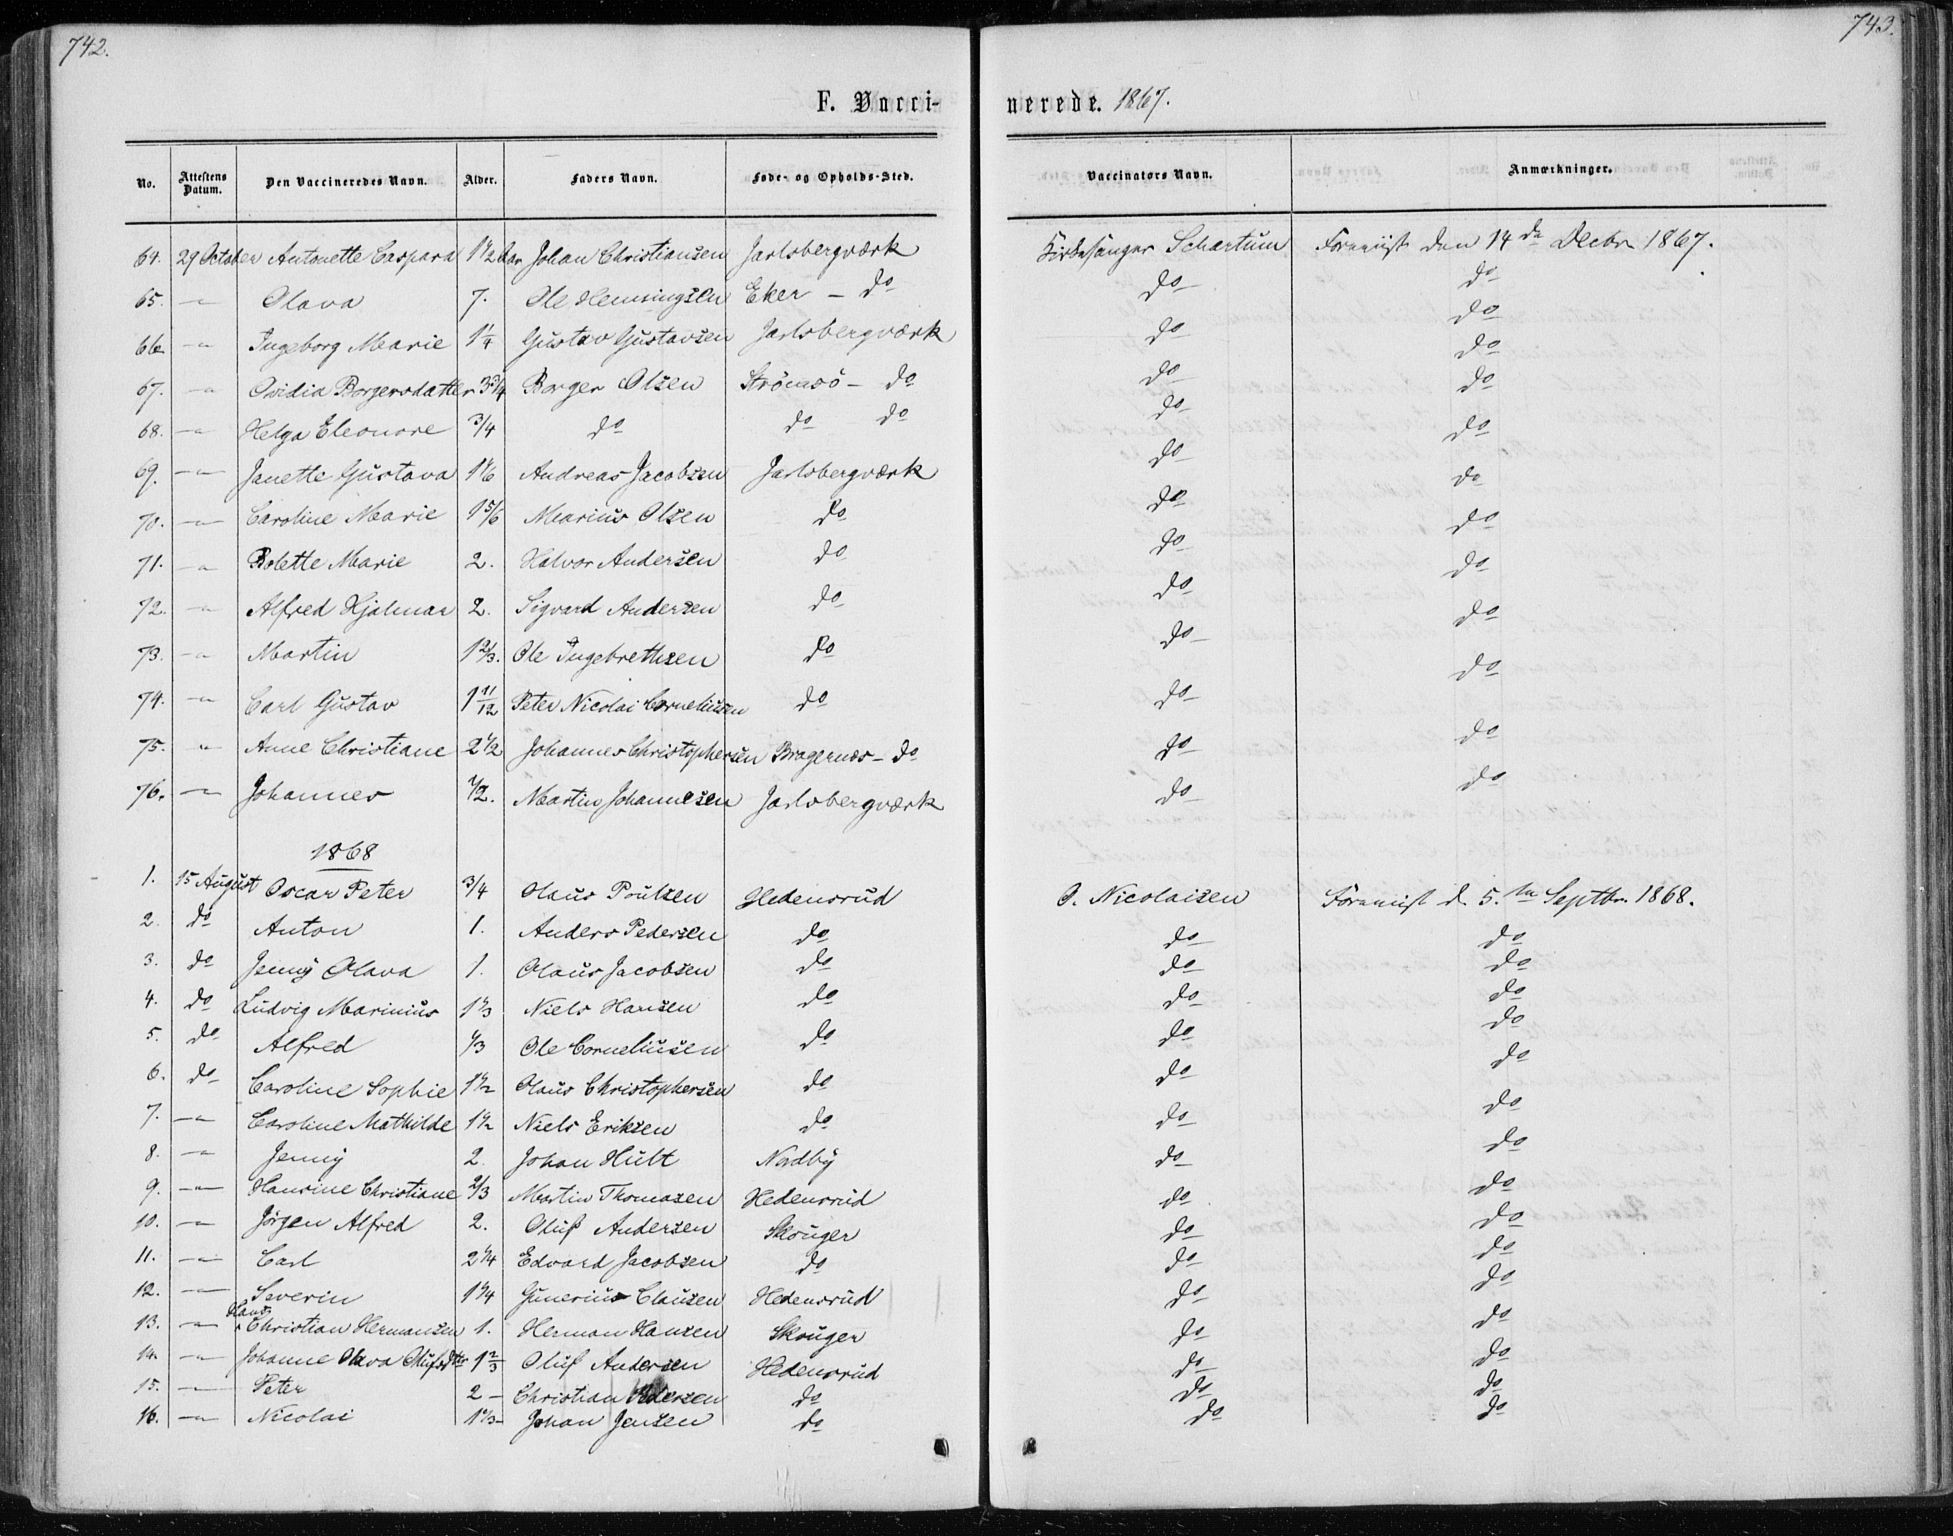 742.
743.
F. Vacci-
nerede. 1867.
No. Attestens Datum. Den Vaccineredes Navn. Alder. Faders Navn. Føde- og Opholds-Sted. Vaccinators Navn. Anmærkninger.
64. 29 October Antonette Caspara 1 1/2 Aar Johan Christiansen Jarlsbergværk Kirkesanger Schartum Foreviist den 14de Decbr 1867.
65. -"- Olava 7. Ole Henningsen Eker - do do do
66. -"- Ingeborg Marie 1 1/4 Gustav Gustavsen Jarlsbergværk do do
67. -"- Ovidia Borgersdatter 3 3/4 Borger Olsen Strømsø - do do do
68. -"- Helga Eleonore 3/4 do do do do do
69. -"- Janette Gustava 1 1/6 Andreas Jacobsen Jarlsbergværk do do
70. -"- Caroline Marie 1 5/6 Marius Olsen do do do
71. -"- Bolette Marie 2. Halvor Andersen do do do
72. -"- Alfred Hjalmar 2. Sigvard Andersen do do do
73. -"- Martin 1 2/3. Ole Ingebrethsen do do do
74. -"- Carl Gustav 1 11/12 Peter Nicolai Corneliusen do do do
75. " Anne Christiane 2 1/2 Johannes Christophersen Bragernæs - do do do
76. -"- Johannes 1/2. Martin Johannesen Jarlsbergværk do do
1868
1. 15 August Oscar Peter 3/4 Olaus Poulsen Hedensrud O. Nicolaisen Foreviist d. 5.te Septbr. 1868.
2. do Anton 1. Anders Pedersen do do do
3. do Jenny Olava 1. Olaus Jacobsen do do do
4. do Ludvig Marinius 1 1/3 Niels Hansen do do do
5. do Alfred 1/3 Ole Corneliusen do do do
6. do Caroline Sophie 1 1/2 Olaus Christophersen do do do
7. -"- Caroline Mathilde 1 1/2 Niels Eriksen do do do
8. -"- Jenny 2. Johan Hult Nordby do do
9. -"- Hansine Christiane 2/3 Martin Thomasen Hedensrud do do
10. -"- Jørgen Alfred 2. Oluf Andersen Skouger do do
11. -"- Carl 2 1/4 Edvard Jacobsen do do do
12. -"- Severin 1 1/4 Gunerius Clausen Hedensrud do do
13. -"- Hans Christian Hermansen 1. Herman Hansen Skouger do do
14. -"- Johanne Olava Olufsdtr 1 2/3 Oluf Andersen Hedensrud do do
15. -"- Peter 2 - Christian Pedersen do do do
16. -"- Nicolai 1 1/3- Johan Jensen do do do